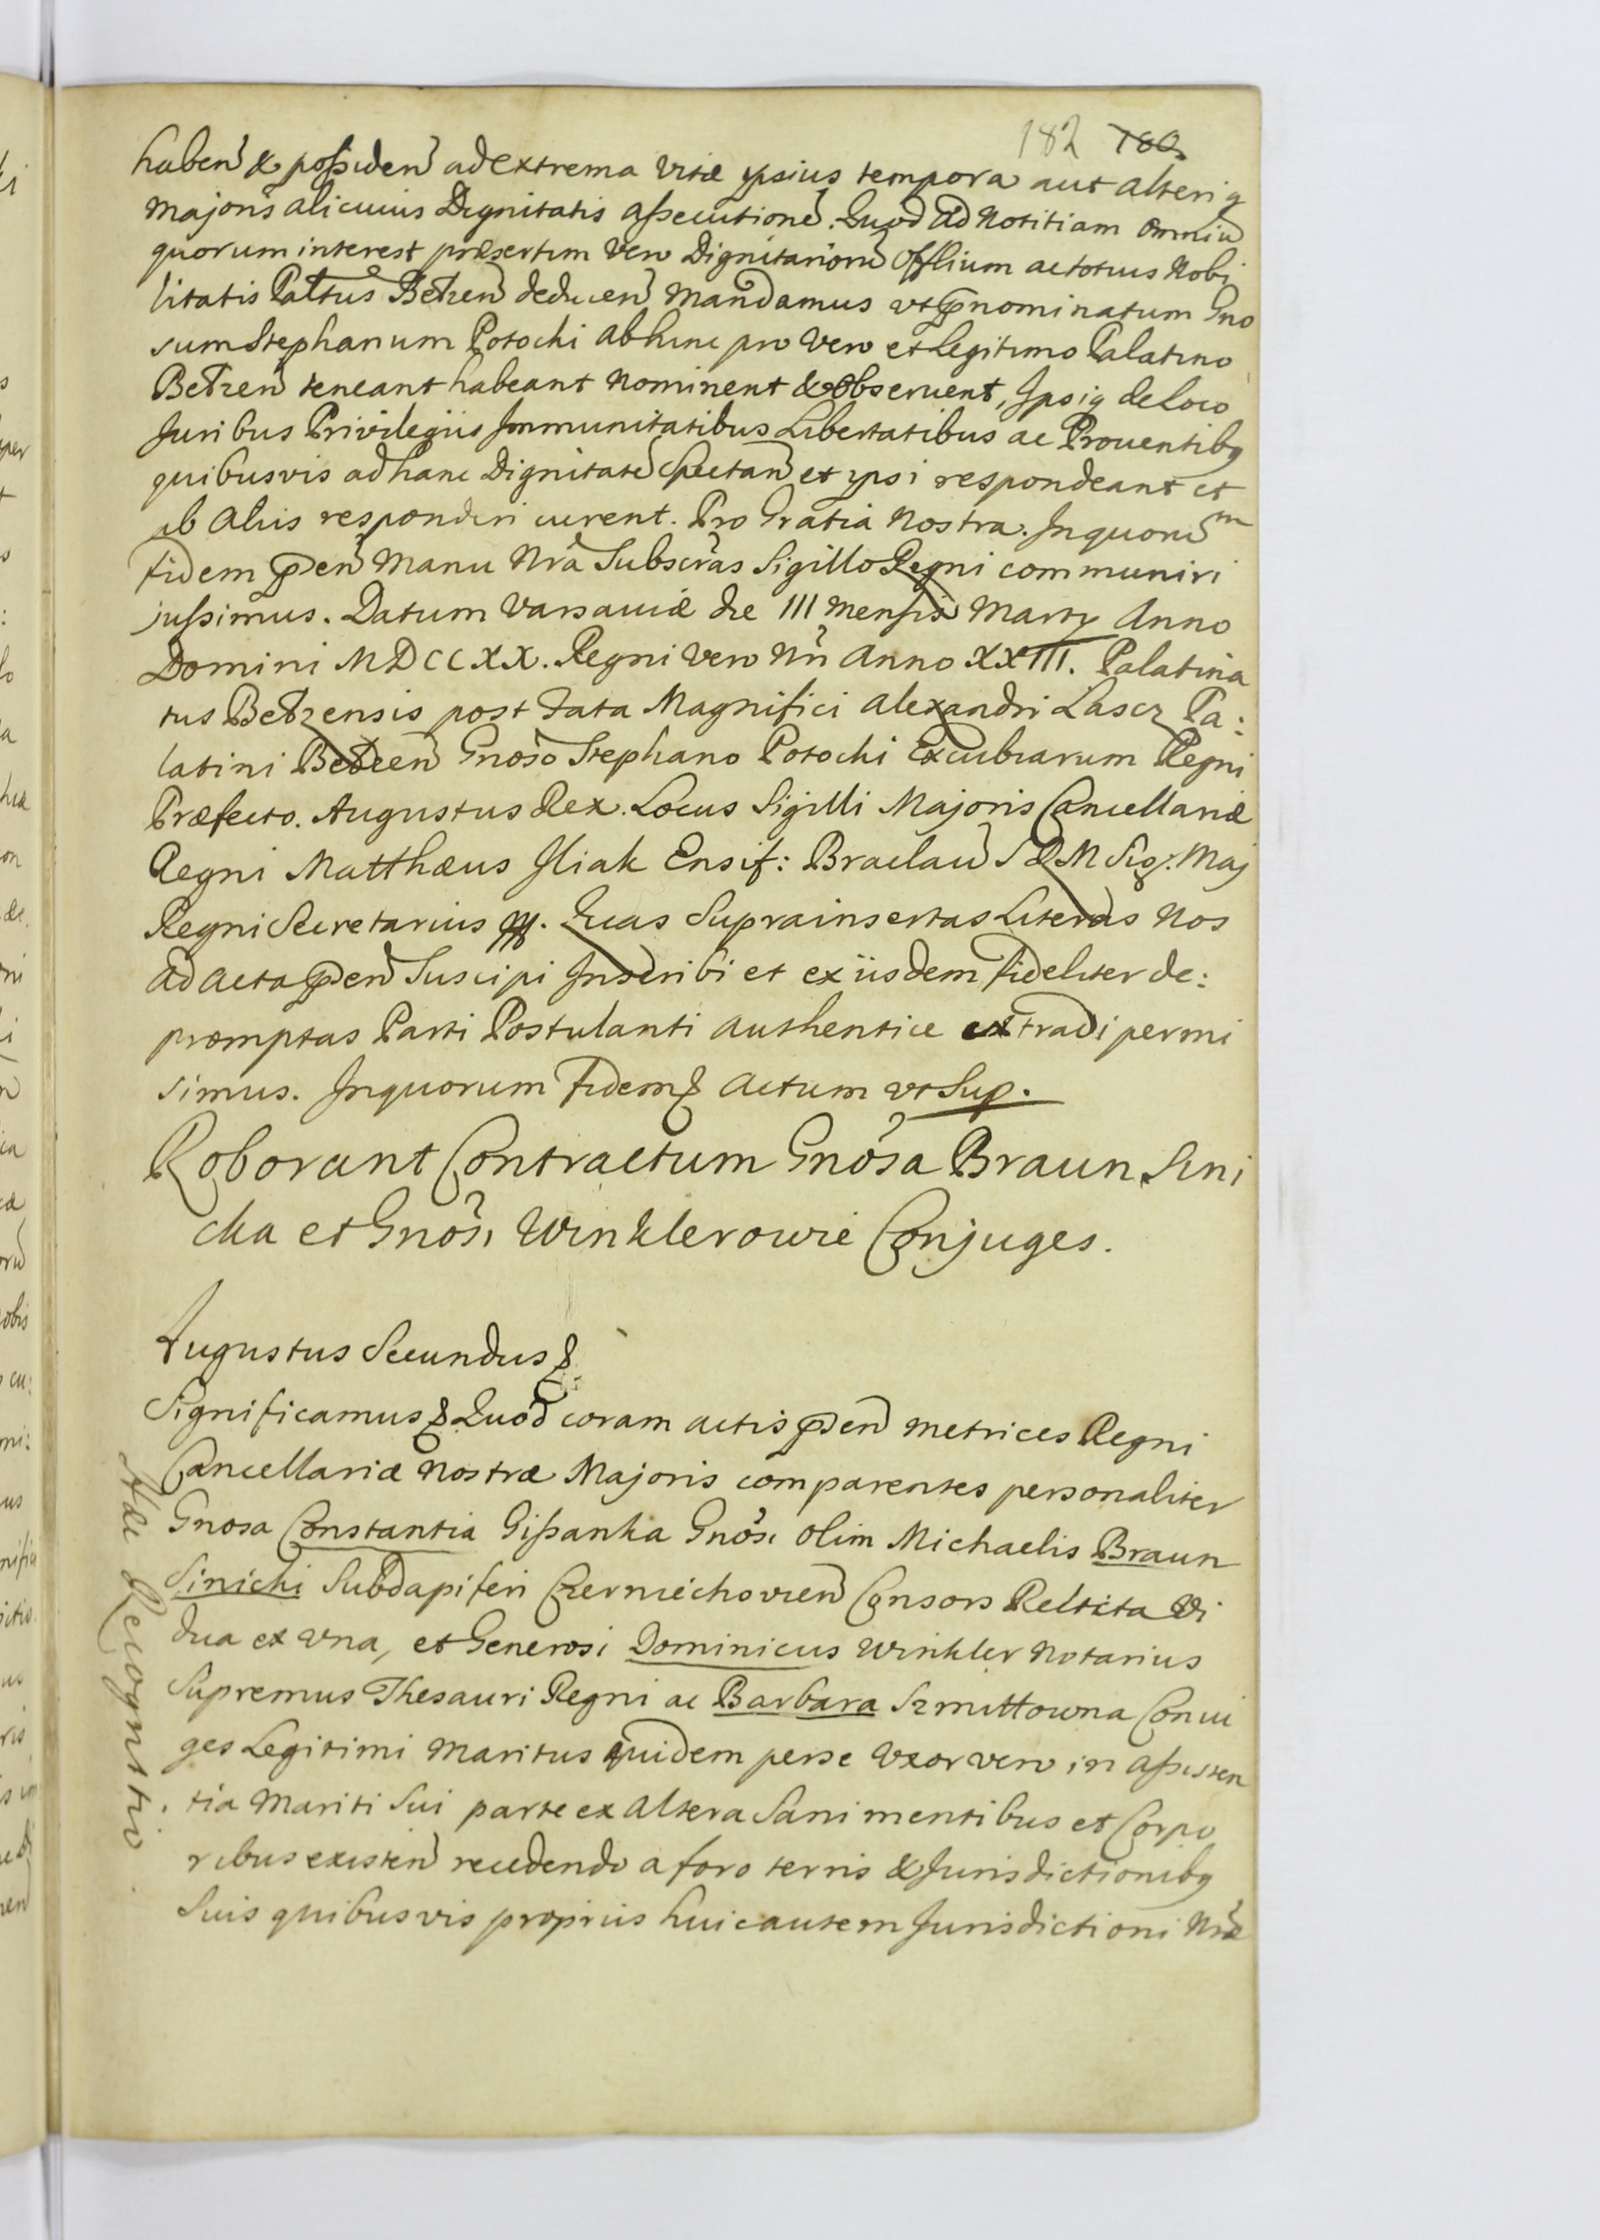 182 180
haben & possiden ad extrema vitæ ipsius tempora aut alteriq
Majoris alicuius Dignitatis assecutionē. Quod ad Notitiam omniū
quorum interest præsertim vero Dignitariorū Offlium ac totius Nobi
litatis Pałtus Bełzen deducen Mandamus ut prænominatum Gno
sum Stephanum Potocki abhinc pro vero et Legitimo Palatino
Bełzen teneant habeant Nominent & Observent, Ipsiq de Loco
Juribus Privilegiis Immunitatibus Libertatibus ac Proventibq
quibusvis ad hanc Dignitatē Spectan et ipsi respondeant et
ab Aliis responderi curent. Pro Gratia Nostra. In quorū
fidem præsen Manu Nra Subscras Sigillo Regni communiri
jussimus. Datum Varsaviæ die III Mensis Marty Anno
Domini MDCCXX. Regni vero Nri Anno XXIII. Palatina
tus Bełzensis post Fata Magnifici Alexandri Lascz Pa:
latini Bełzen Gnoso Stephano Potocki Excubiarum Regni
Præfecto. Augustus Rex. Locus Sigilli Majoris Cancellariæ
Regni Matthæus Iliak Ensif: Braclaw S R M Sig: Maj
Regni Secretarius mp. Quas Suprainsertas Literas Nos
ad acta præsen Suscipi Inscribi et ex iisdem fideliter de:
promptas Parti Postulanti authentice extradi permi
simus. In quorum Fidem & Actum ut Sup.
Roborant Contractum Gnosa Braun Sini
cka et Gnosi Winklerowie Conjuges.
Augustus Secundus &
Significamus & Quod coram actis præsen Metrices Regni
Cancellariæ Nostræ Majoris comparentes personaliter
Gnosa Constantia Gissanka Gnosi olim Michaelis Braun
Sinicki Subdapiferi Czerniechovien Consors Relicta Vi
dua ex una, et Generosi Dominicus Winkler Notarius
Supremus Thesauri Regni ac Barbara Szmittowna Coniu
ges Legitimi Maritus quidem per se Uxor vero in assisten
tia Mariti Sui parte ex altera Sani mentibus et Corpo
ribus existen recedendo a foro terris & Jurisdictionibq
Suis quibusvis propriis huic autem Jurisdictioni Nræ
Recognitio